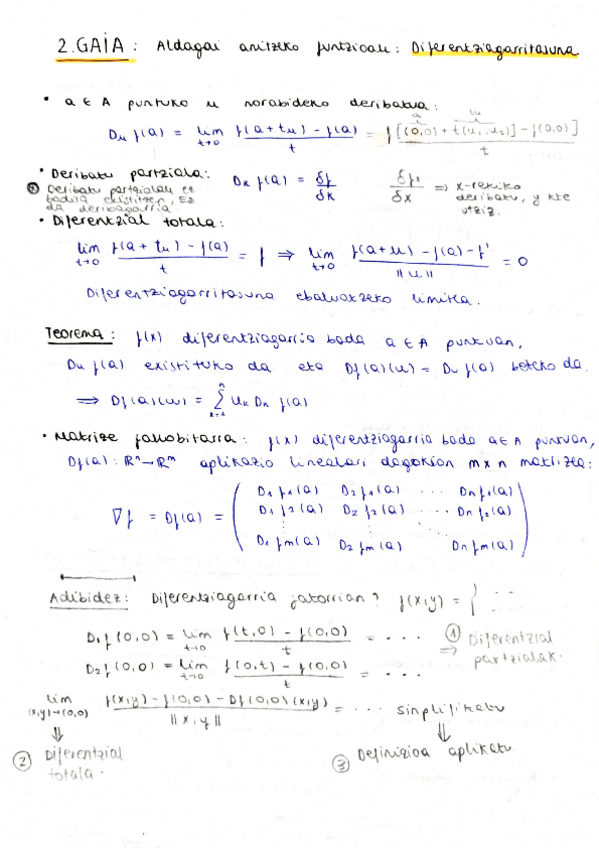 2. GAIA : Aldagai anitzeko funtzioak : Diferentziagarritasuna
• a ∈ A puntuko u norabideko deribatua :
Du f(a) = lim t→0 f(a+tu) - f(a) / t = f[(0,0) + t(u1,u2)] - f(0,0) / t
• Deribatu partziala: Dk f(a) = δf/δk δf1/δx ⇒ x-rekiko deribatu, y kte utziz.
Deribatu partzialak ez badira existitzen, Ez da deribagarria
• Diferentzial totala:
lim t→0 f(a+tu) - f(a) / t = f ⇒ lim t→0 f(a+u) - f(a) - f' / ||u|| = 0
Diferentziagarritasuna ebaluatzeko limitea.
Teorema : f(x) diferentziagarria bada a ∈ A puntuan,
Du f(a) existituko da eta Df(a)(u) = Du f(a) beteko da.
⇒ Df(a)(u) = Σ k=1 n uk Dk f(a)
• Matrize jakobitarra : f(x) diferentziagarria bada a ∈ A puntuan,
Df(a) : ℝⁿ→ℝᵐ aplikazio linealari dagokion m x n matrizea:
D1 f1(a) D2 f1(a) ... Dn f1(a)
∇f = Df(a) = D1 f2(a) D2 f2(a) ... Dn f2(a)
D1 fm(a) D2 fm(a) Dn fm(a)
Adibidez : Diferentziagarria jatorrian? f(x,y) = { ...
D1 f(0,0) = lim t→0 f(t,0) - f(0,0) / t = ... ① ⇒ Diferentzial partzialak.
D2 f(0,0) = lim t→0 f(0,t) - f(0,0) / t = ...
lim (x,y)→(0,0) f(x,y) - f(0,0) - Df(0,0)(x,y) / ||x,y|| = ... sinplifikatu
⇓ ⇓
② Diferentzial totala. ③ Definizioa aplikatu.